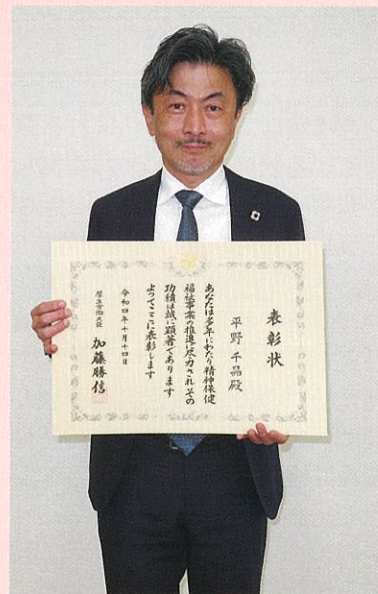 表彰状
平野 千晶殿
あなたは多年にわたり精神保健
福祉事業の推進に尽力されその
功績は誠に顕著であります
よってここに表彰します
令和四年十月十四日
厚生労働大臣 加藤勝信